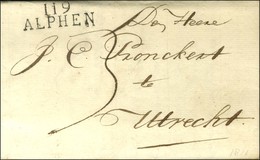 119
ALPHEN
De Heere
J. C. Pronckert
te
Uttrecht.